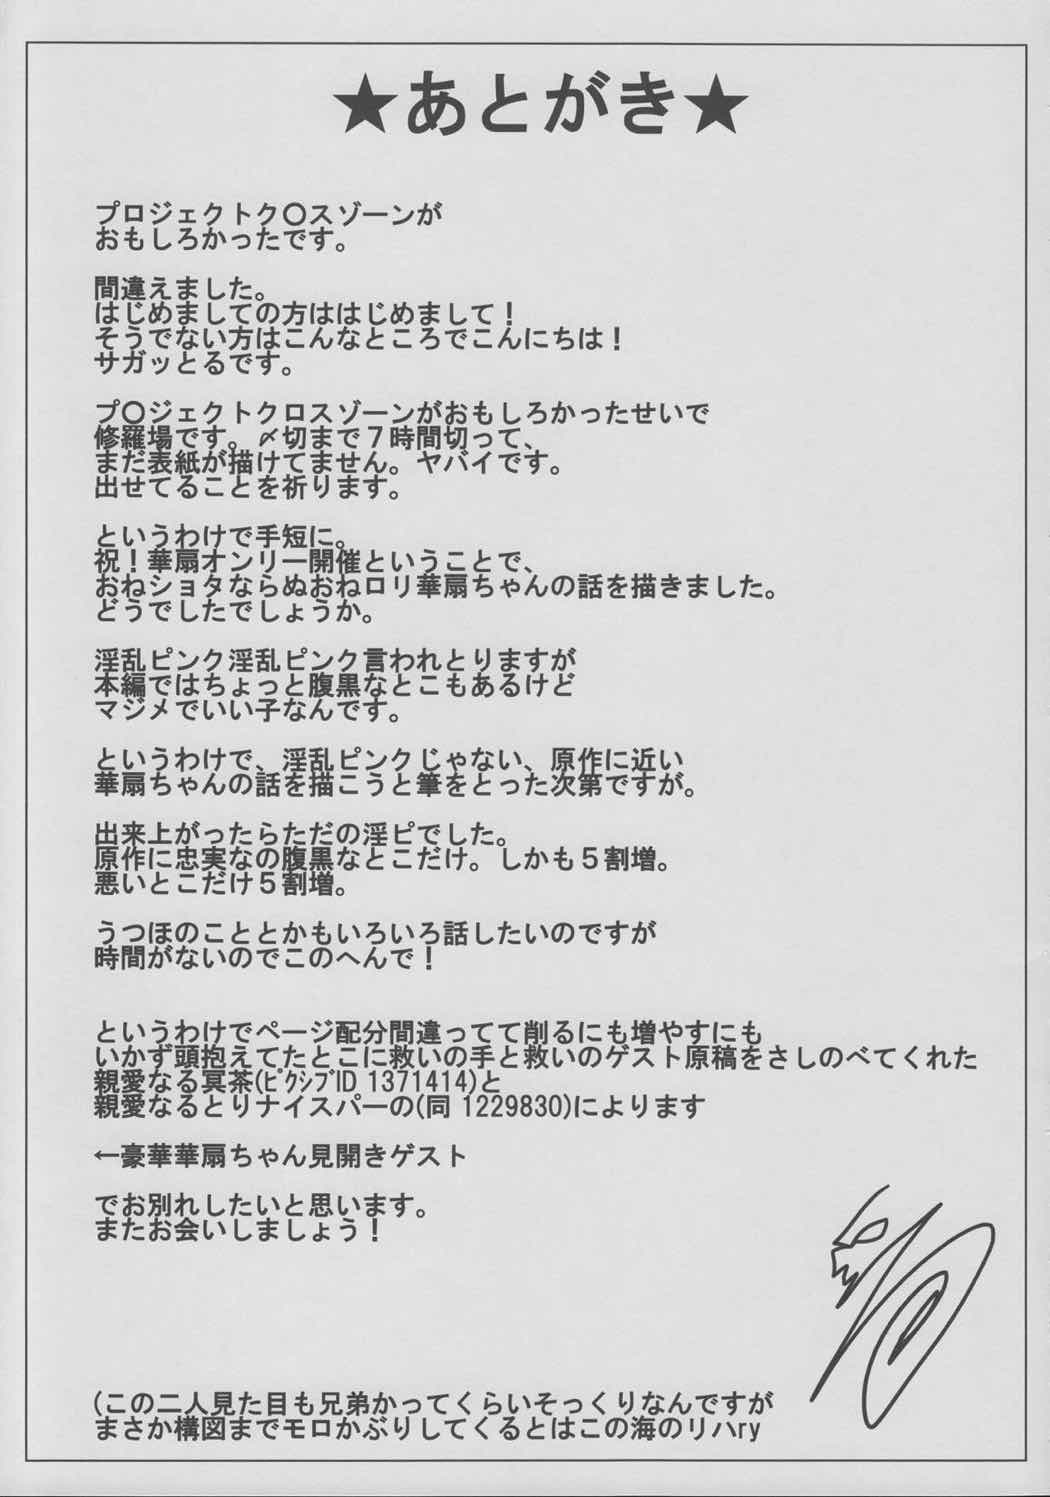 ★あとがき★
プロジェクトク〇スゾーンが
おもしろかったです。
間違えました。
はじめましての方ははじめまして！
そうでない方はこんなところでこんにちは！
サガッとるです。
プ〇ジェクトクロスゾーンがおもしろかったせいで
修羅場です。〆切まで７時間切って、
まだ表紙が描けてません。ヤバイです。
出せてることを祈ります。
というわけで手短に。
祝！華扇オンリー開催ということで、
おねショタならぬおねロリ華扇ちゃんの話を描きました。
どうでしたでしょうか。
淫乱ピンク淫乱ピンク言われとりますが
本編ではちょっと腹黒なとこもあるけど
マジメでいい子なんです。
というわけで、淫乱ピンクじゃない、原作に近い
華扇ちゃんの話を描こうと筆をとった次第ですが。
出来上がったらただの淫ピでした。
原作に忠実なの腹黒なとこだけ。しかも５割増。
悪いとこだけ５割増。
うつほのこととかもいろいろ話したいのですが
時間がないのでこのへんで！
というわけでページ配分間違ってて削るにも増やすにも
いかず頭抱えてたとこに救いの手と救いのゲスト原稿をさしのべてくれた
親愛なる冥茶(ﾋﾟｸｼﾌﾞID 1371414)と
親愛なるとりナイスパーの(同 1229830)によります
←豪華華扇ちゃん見開きゲスト
でお別れしたいと思います。
またお会いしましょう！
(この二人見た目も兄弟かってくらいそっくりなんですが
まさか構図までモロかぶりしてくるとはこの海のリハry